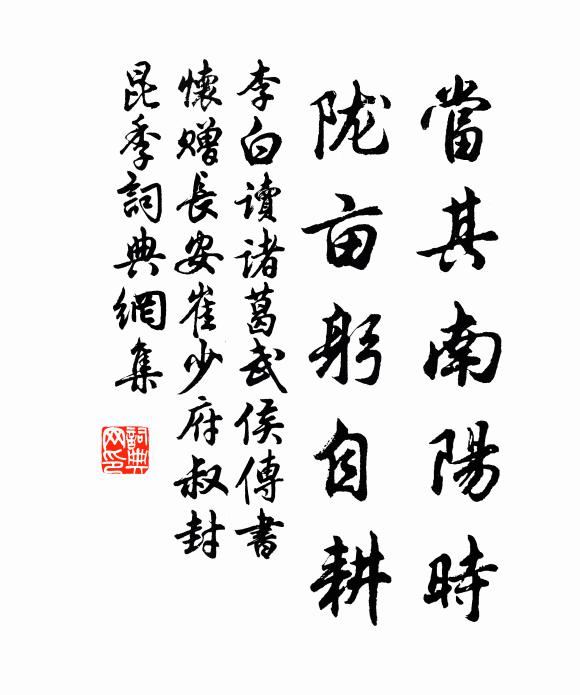 當其南陽時
陇亩躬自耕
李白讀諸葛武侯傳書
懷贈長安崔少府叔封
昆季詞典網集
詞典
网印